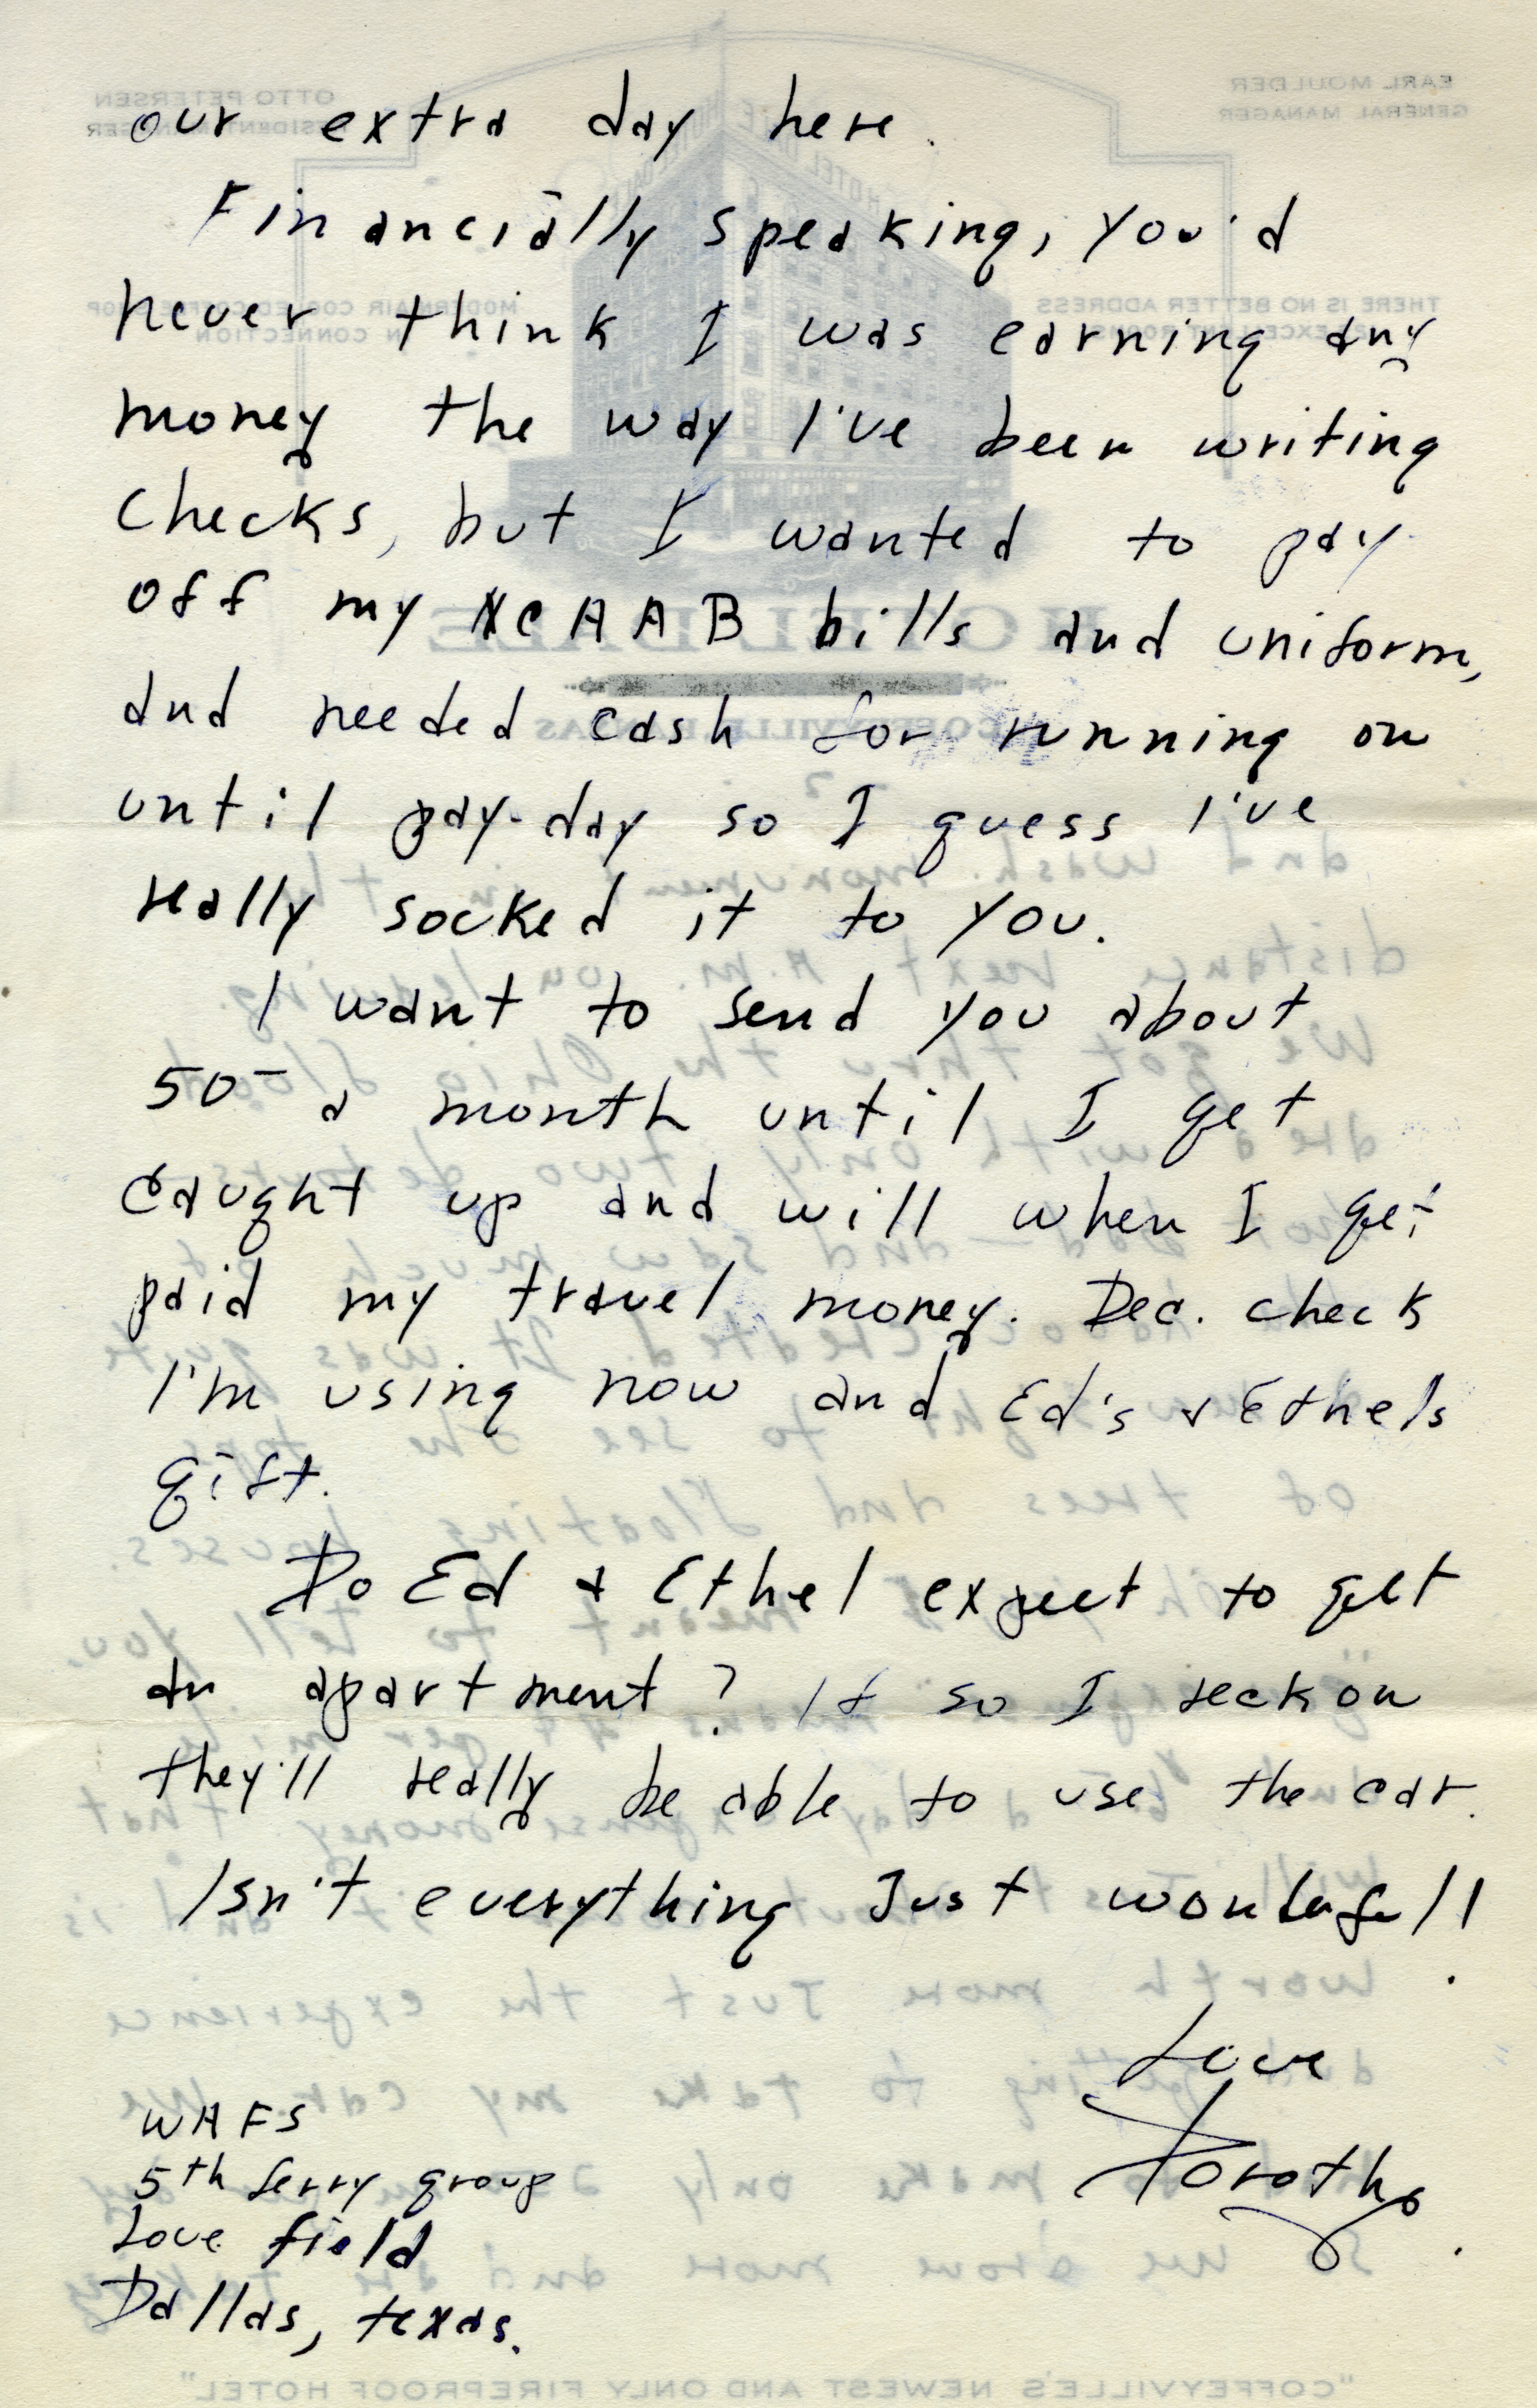 our extra day here.
Financially speaking, you'd
never think I was earning any
money the way I've been writing
checks, but I wanted to pay
off my NCAAB bills and uniform,
and needed cash for running on
until pay-day so I guess I've
really socked it to you.
I want to send you about
50- a month until I get
caught up and will when I get
paid my travel money. Dec. check
I'm using now and Ed's & Ethels
gift.
Do Ed & Ethel expect to get
an apartment? If so I reckon
they'll really be able to use the car.
Isn't everything Just wonderful!
Love
Dorothy.
WAFS
5th ferry group
Love field
Dallas, texas.